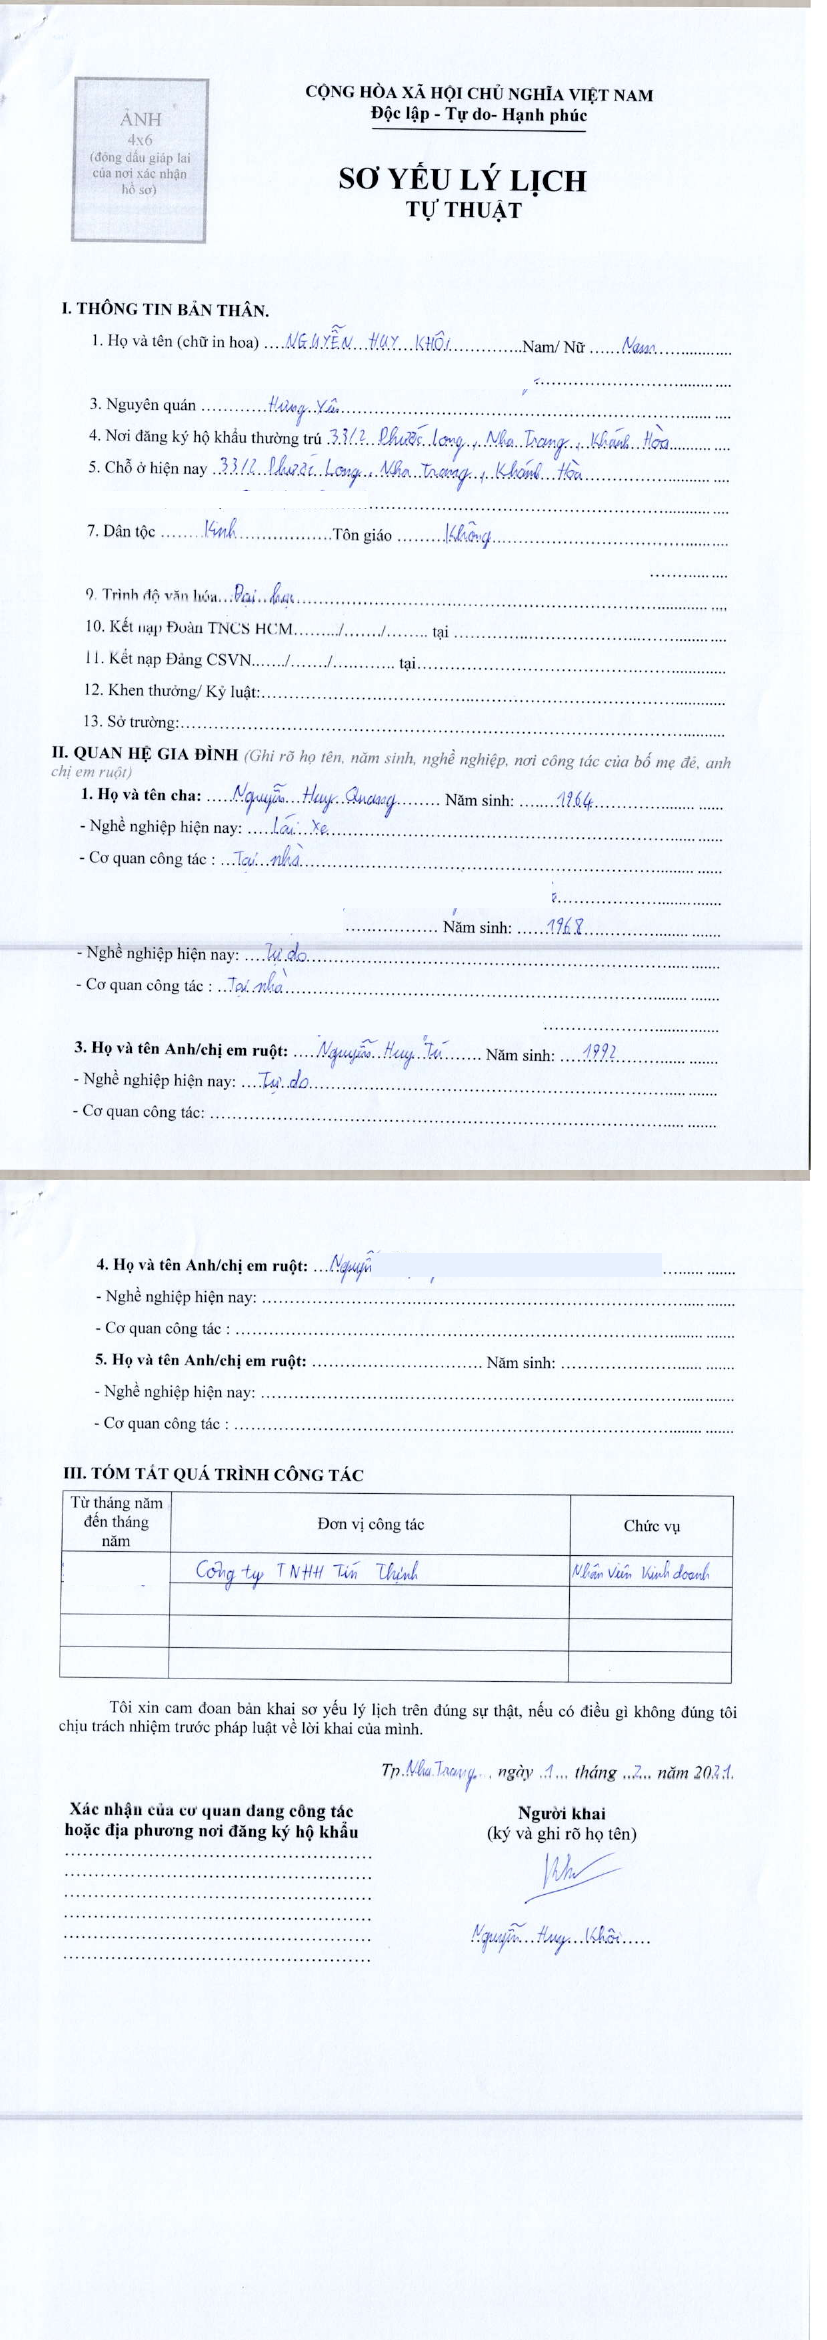 ẢNH
4x6
(đóng dấu giáp lai
của nơi xác nhận
hồ sơ)
CỘNG HÒA XÃ HỘI CHỦ NGHĨA VIỆT NAM
Độc lập - Tự do- Hạnh phúc
SƠ YẾU LÝ LỊCH
TỰ THUẬT
I. THÔNG TIN BẢN THÂN.
1. Họ và tên (chữ in hoa) ....NGUYỄN HUY KHÔI............Nam/ Nữ ......Nam..............
3. Nguyên quán ............Hưng Yên..............................
4. Nơi đăng ký hộ khẩu thường trú 33/2 Phước Long, Nha Trang, Khánh Hòa............
5. Chỗ ở hiện nay .33/2 Phước Long, Nha Trang, Khánh Hòa..............................
7. Dân tộc ........Kinh......................Tôn giáo .........Không..............................
9. Trình độ văn hóa...Đại học..............................
10. Kết nạp Đoàn TNCS HCM......../......./........ tại ..............................
11. Kết nạp Đảng CSVN....../......./............ tại..............................
12. Khen thưởng/ Kỷ luật:..............................
13. Sở trường:..............................
II. QUAN HỆ GIA ĐÌNH (Ghi rõ họ tên, năm sinh, nghề nghiệp, nơi công tác của bố mẹ đẻ, anh
chị em ruột)
1. Họ và tên cha: .....Nguyễn Huy Quang......... Năm sinh: ........1964..............
- Nghề nghiệp hiện nay: ....Lái xe..............................
- Cơ quan công tác : ...Tại nhà..............................
................... Năm sinh: ......1968..............
- Nghề nghiệp hiện nay: ....Tự do..............................
- Cơ quan công tác : ..Tại nhà..............................
3. Họ và tên Anh/chị em ruột: ....Nguyễn Huy Tú....... Năm sinh: .....1992..............
- Nghề nghiệp hiện nay: ....Tự do..............................
- Cơ quan công tác: ..............................
4. Họ và tên Anh/chị em ruột: ...Nguyễn ..............
- Nghề nghiệp hiện nay: ..............................
- Cơ quan công tác : ..............................
5. Họ và tên Anh/chị em ruột: .............................. Năm sinh: ..............................
- Nghề nghiệp hiện nay: ..............................
- Cơ quan công tác : ..............................
III. TÓM TẮT QUÁ TRÌNH CÔNG TÁC
Từ tháng năm
đến tháng
năm
Đơn vị công tác
Chức vụ
Công ty TNHH Tín Thịnh
Nhân viên Kinh doanh
Tôi xin cam đoan bản khai sơ yếu lý lịch trên đúng sự thật, nếu có điều gì không đúng tôi
chịu trách nhiệm trước pháp luật về lời khai của mình.
Tp.Nha Trang..., ngày .1... tháng ..2... năm 2021.
Xác nhận của cơ quan đang công tác
hoặc địa phương nơi đăng ký hộ khẩu
Người khai
(ký và ghi rõ họ tên)
Nguyễn Huy Khôi......